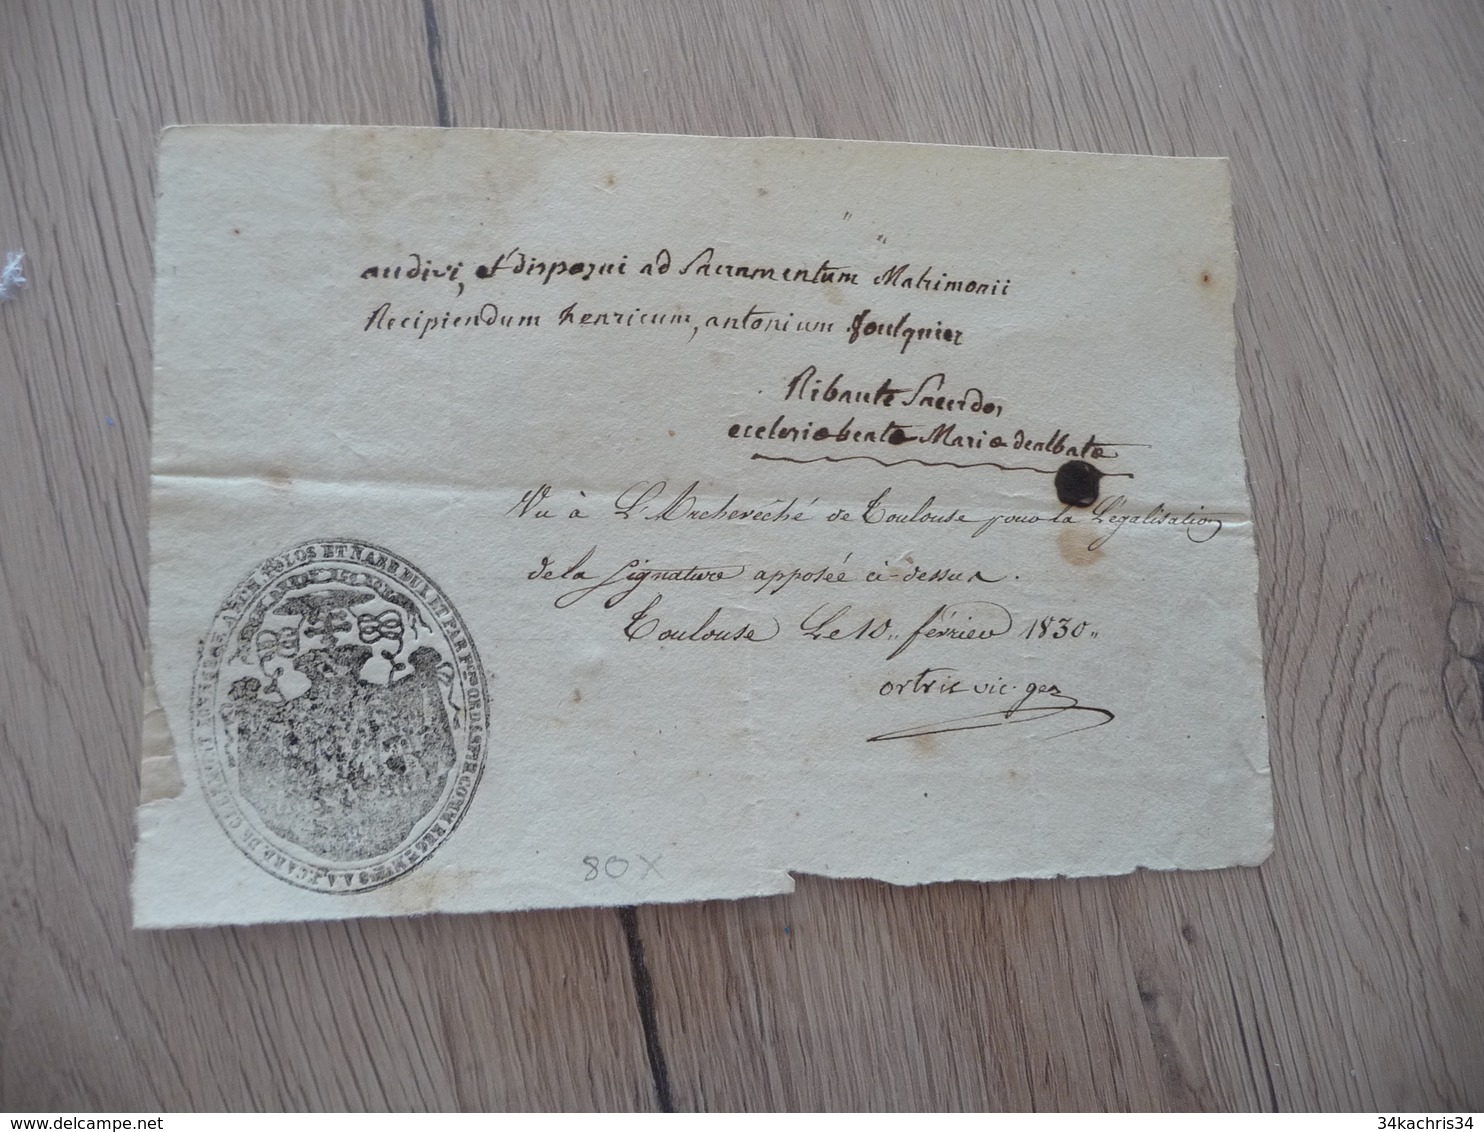 audivi, et disposui ad Sacramentum Matrimonii
Recipiendum henricum, antonium foulquier
Ribaute Sacerdos
ecclesiæ beatæ Mariæ dealbatæ
Vu à L'Archevêché de Toulouse pour la Légalisation
de la Signature apposée ci-dessus.
Toulouse Le 10,, février 1830,,
ortric vic. gen
ARCH. TOLOS ET NARB DUX ET PAR F
80X
delcampe.net
34kachris34